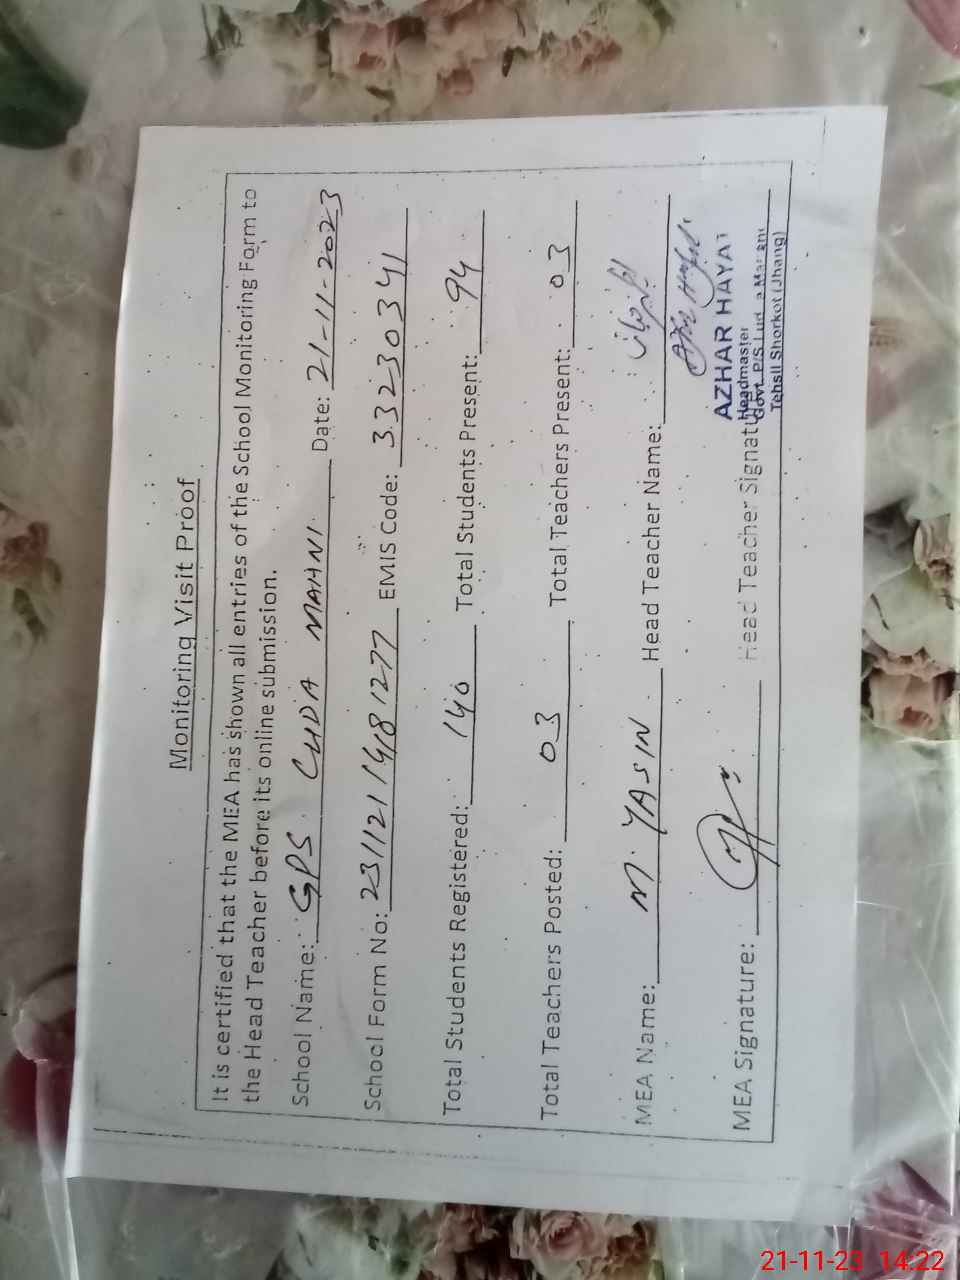 Monitoring Visit Proof
It is certified that the MEA has shown all entries of the School Monitoring Form to
the Head Teacher before its online submission.
School Name: GPS LUDA MAANI Date: 21-11-2023
School Form No: 231121 1418 1277 EMIS Code: 33230341
Total Students Registered: 140 Total Students Present: 94
Total Teachers Posted: 03 Total Teachers Present: 03
MEA Name: M. YASIN Head Teacher Name: اظہر حیات
MEA Signature: Head Teacher Signature
AZHAR HAYAT
Headmaster
Govt. P/S Lud
Tehsil Shorkot (Jhang)
21-11-23 14:22